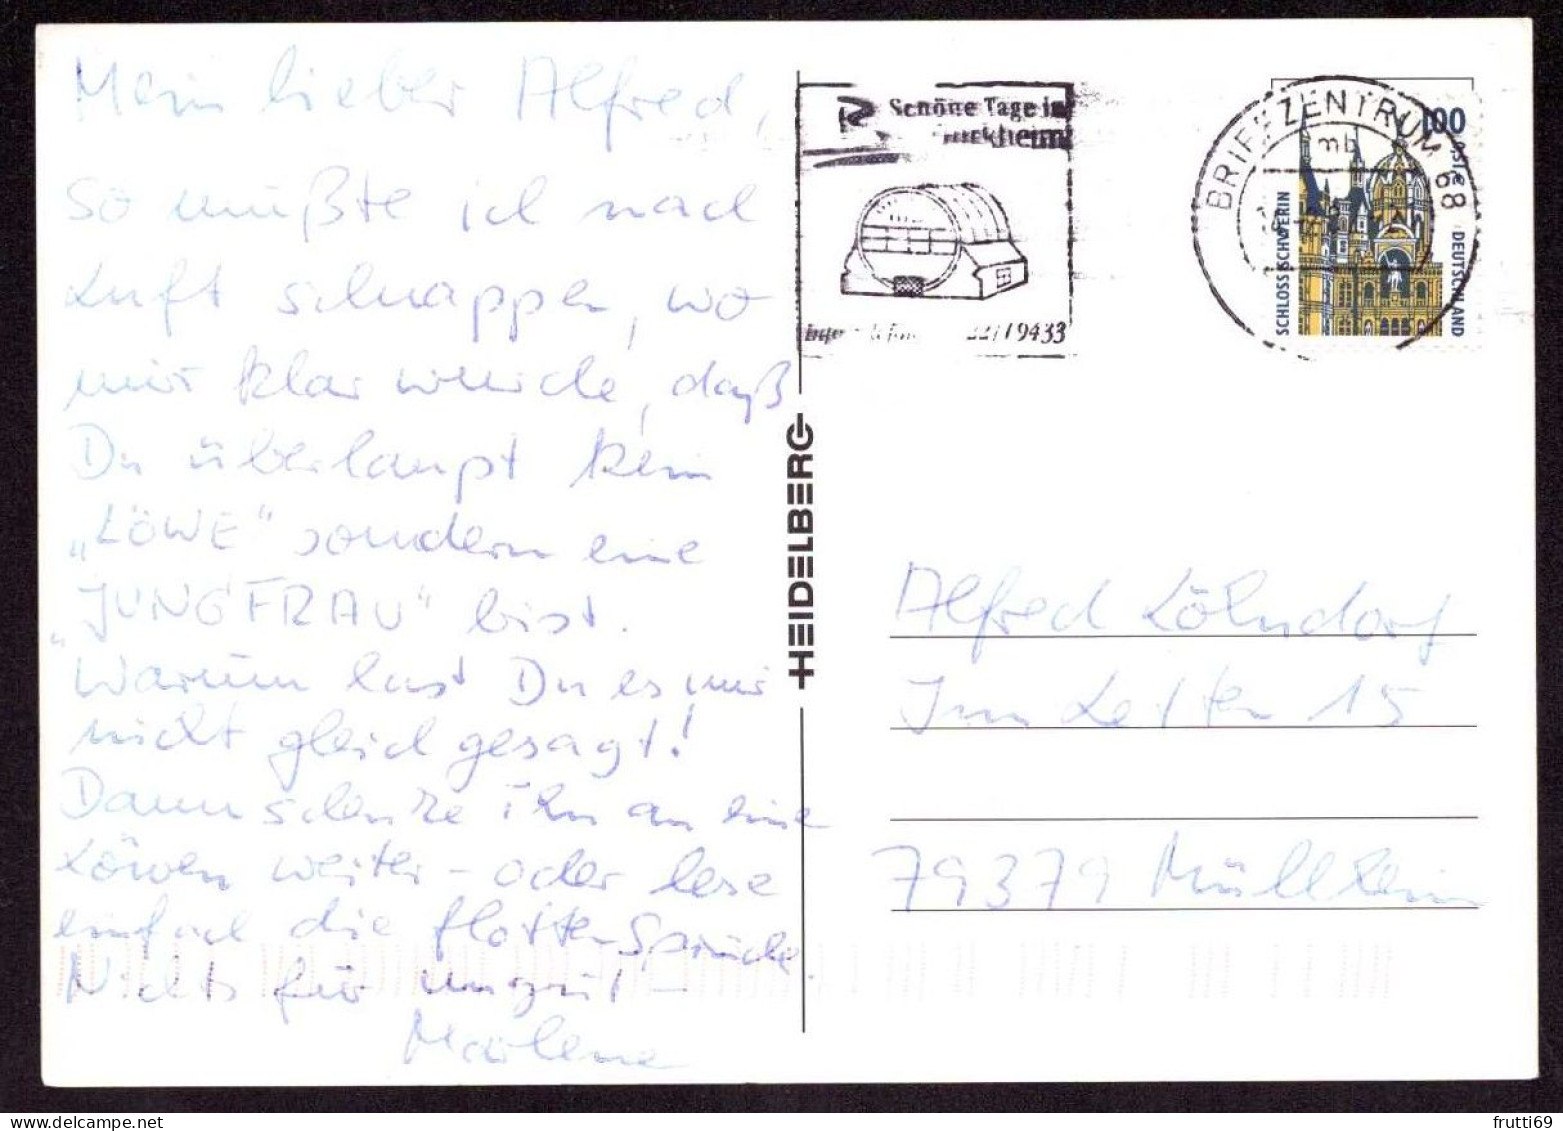 Mein lieber Alfred,
so mußte ich nach
Luft schnappen, wo
mir klar wurde, daß
Du überhaupt kein
„LÖWE“ sondern eine
„JUNGFRAU“ bist.
Warum hast Du es mir
nicht gleich gesagt!
Dann schenke ihn an eine
Löwen weiter - oder lese
einfach die flotten Sprüche.
Nichts für ungut -
Marlene
HEIDELBERG
Schöne Tage in
9433
BRIEFZENTRUM 68
mb
100
SCHLOSS SCHWERIN
DEUTSCHLAND
Alfred Löhndorf
Im Letten 15
79379 Müllheim
frutti69